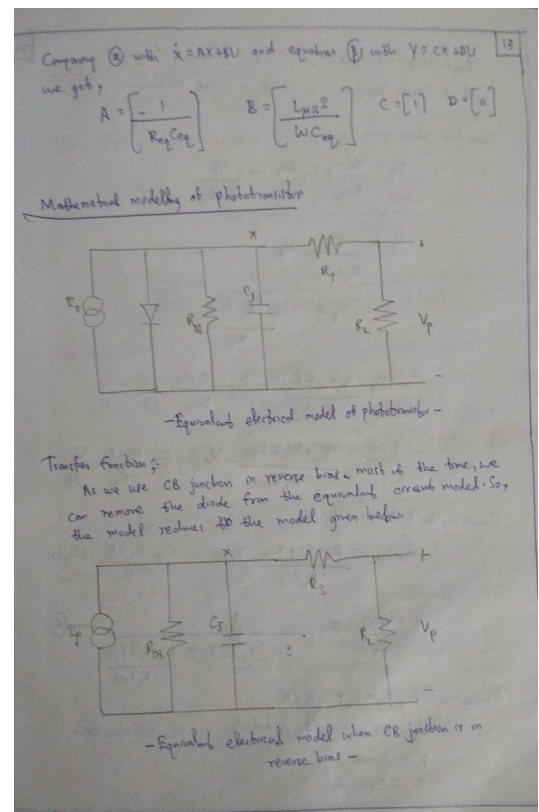 13
Comparing ⓐ with ẋ = AX+BU and equation ⓑ with Y = CX+DU
we get,
A = [- 1 / Req Ceq] B = [ / W Ceq] C = [1] D = [0]
Mathematical modelling of phototransistor
x
+
Rp
Ip
Cj
RL
Vp
-
- Equivalent electrical model of phototransistor -
Transfer function :-
As we use CB junction in reverse bias most of the time, we
can remove the diode from the equivalent circuit model. So,
the model reduces to the model given below.
x
+
Rs
Ip
Rsh
Cj
RL
Vp
-
- Equivalent electrical model when CB junction is in
reverse bias -